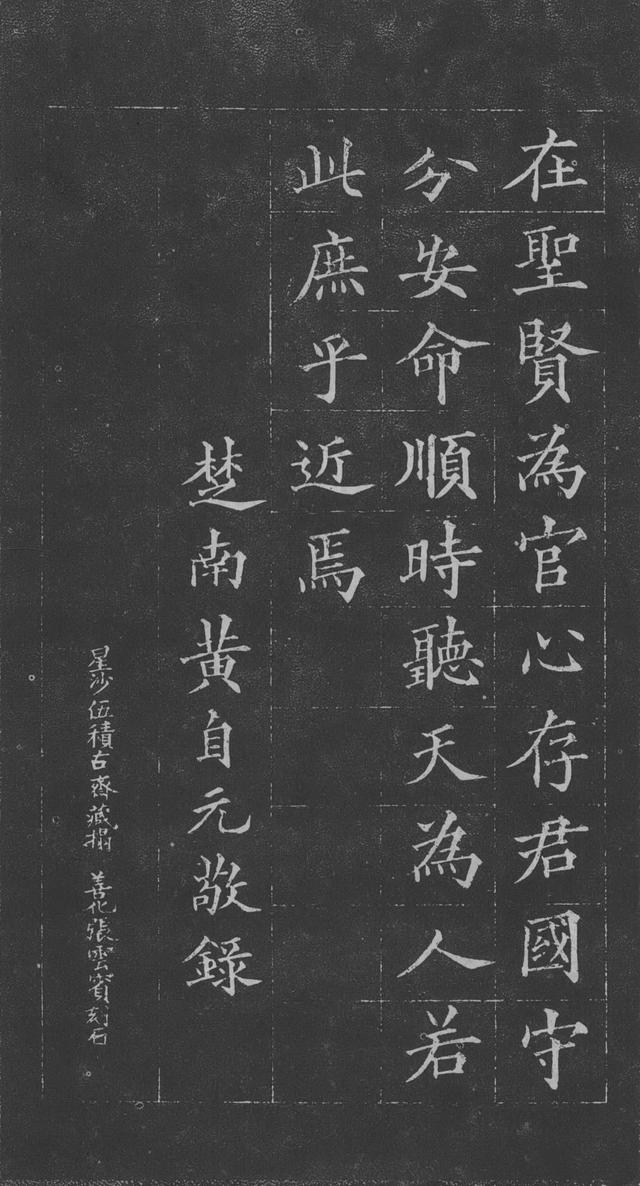 在聖賢為官心存君國守
分安命順時聽天為人若
此庶乎近焉
楚南黄自元敬錄
星沙伍積古齋藏搨 善化張雲賓刻石